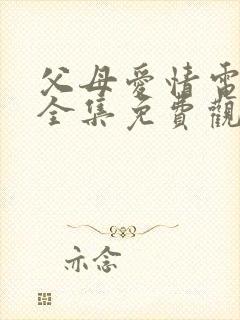 父母愛情電
全集免費觀
亦念